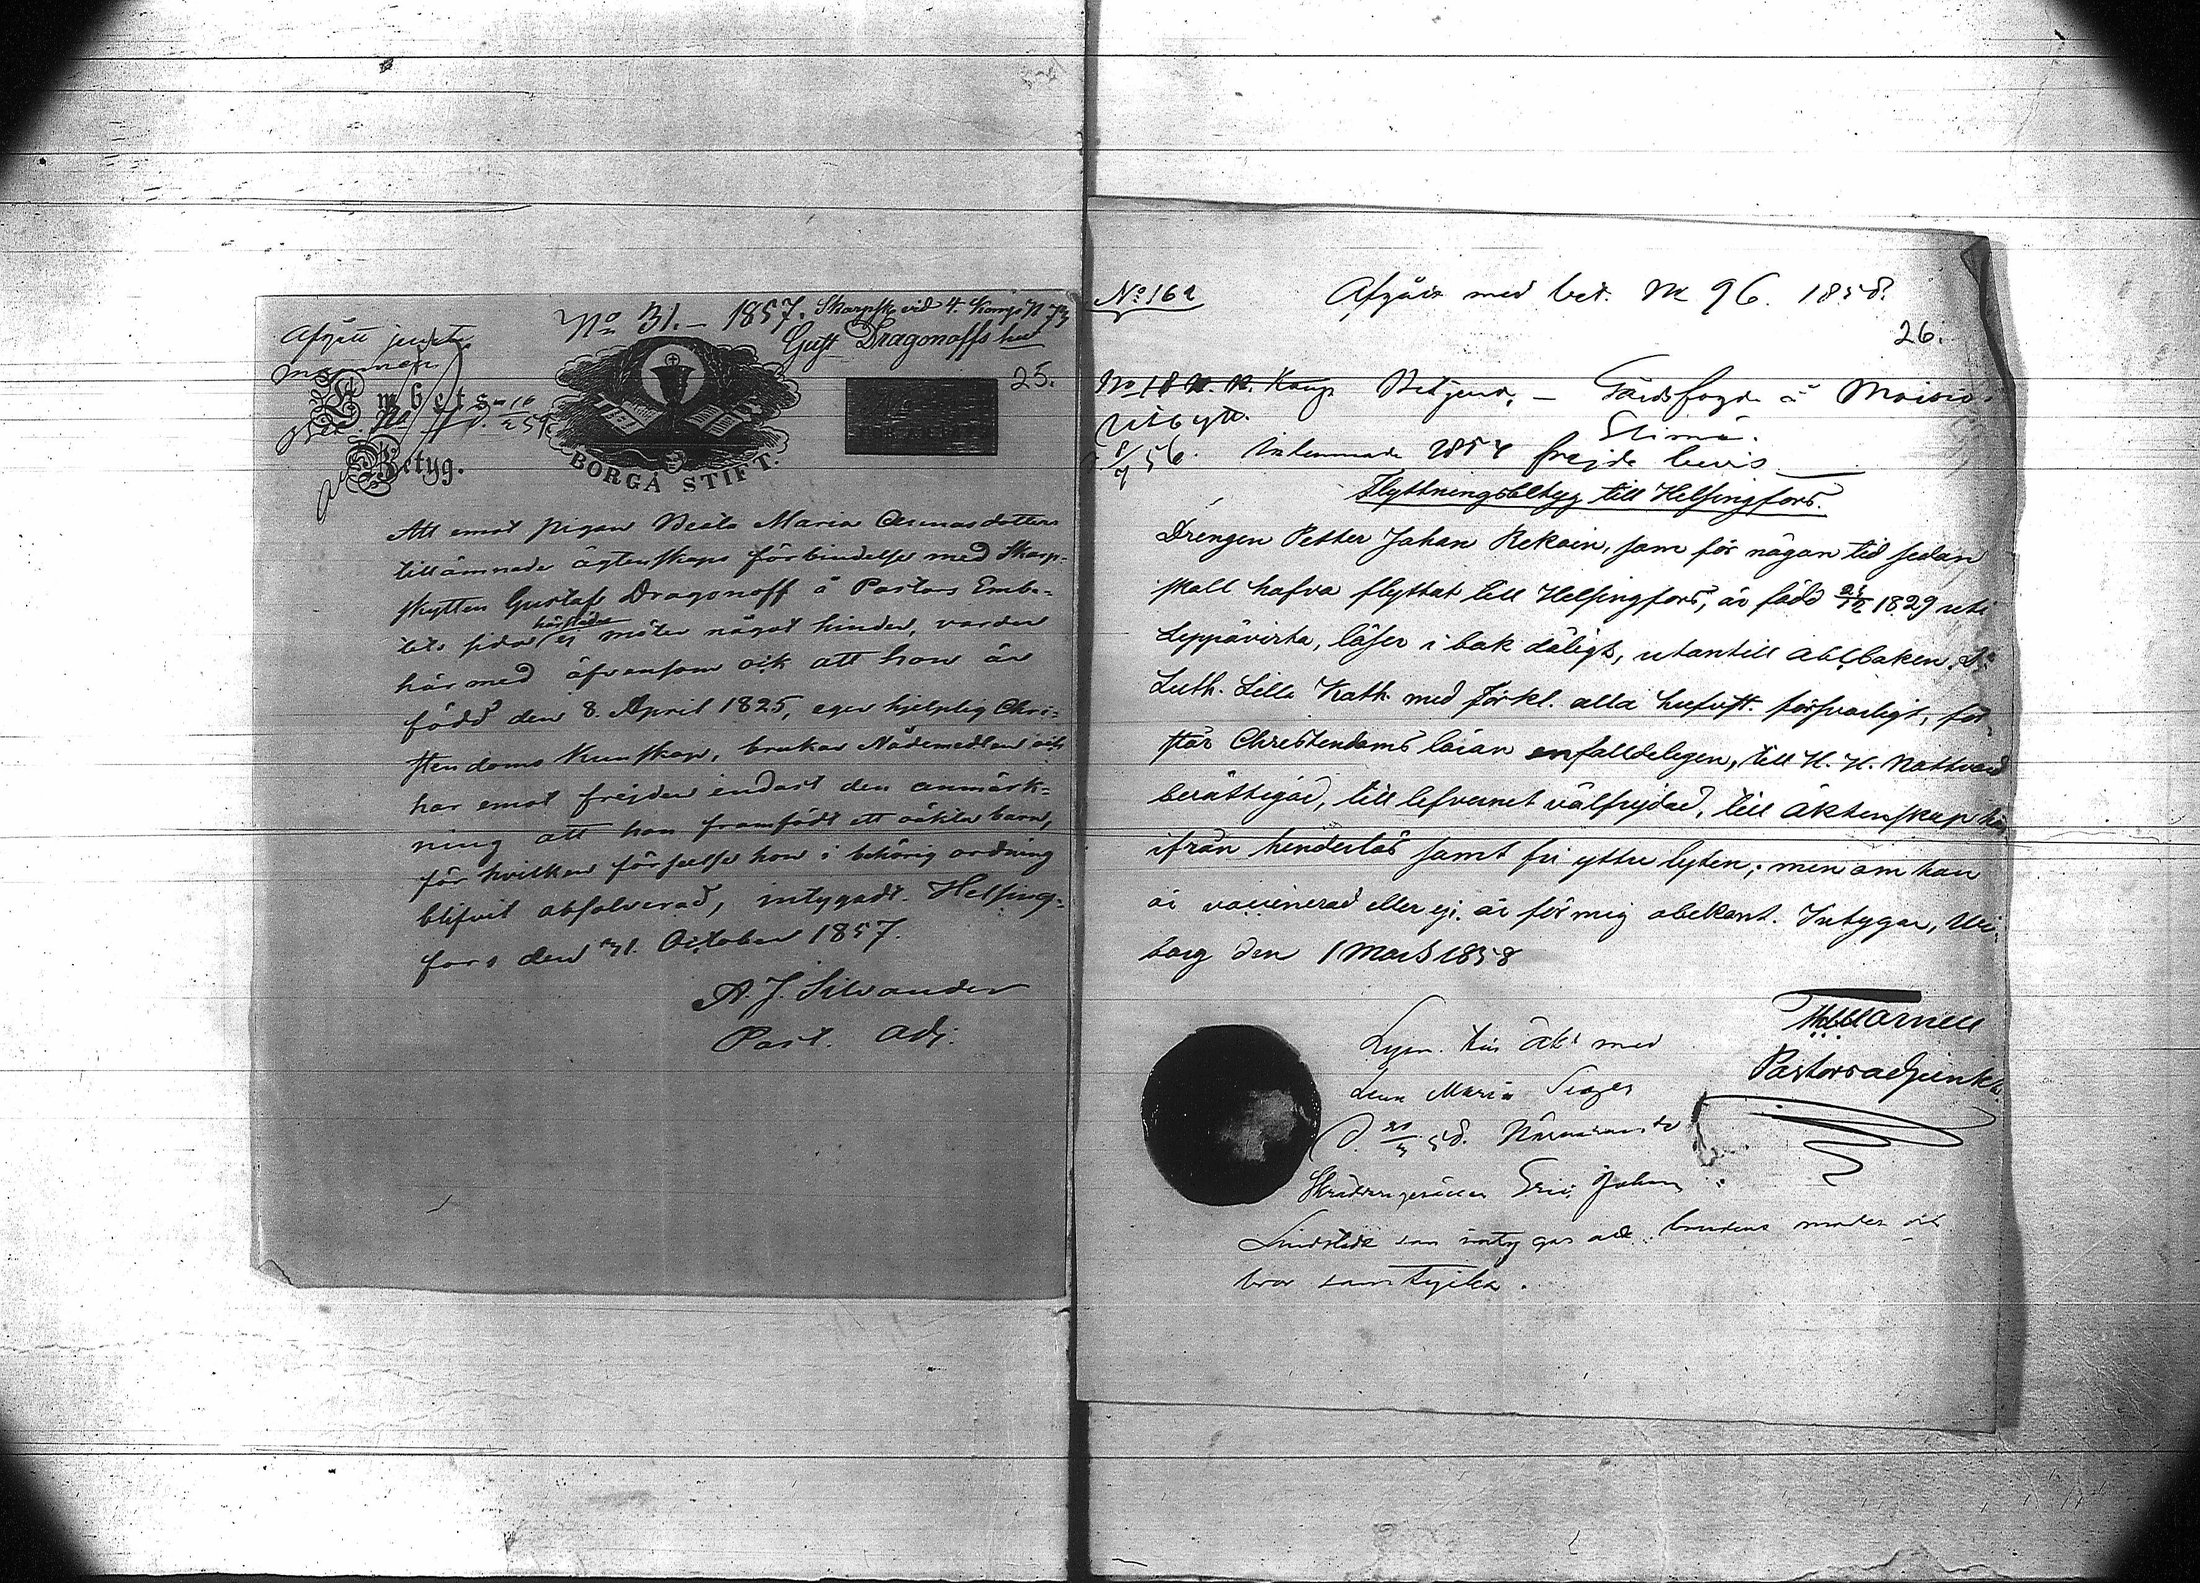 No 31. – 1857. Skarpsk. vid 4. Komp. N 73
Gust Dragonoffs hu
Afgått jemte
mannen
25.
Embets-
Betyg.
BORGÅ STIFT.
Att emot pigan Beata Maria Asmusdotters
tillämnade ägtenskaps förbindelse med Skarp-
skytten Gustaf Dragonoff å Pastors Embe-
tets sida härstädes ej möter något hinder, varder
härmed äfvensom ock att hon är
född den 8. April 1825, eger hjelplig Chri-
stendoms Kunskap, brukar Nådemedlen och
har emot frejden endast den anmärk-
ning att hon framfödt ett oäkta barn,
för hvilken förseelse hon i behörig ordning
blifvit absolverad, intygadt. Helsing-
fors den 31. October 1857.
A. J. Silvander
Past. Adj.
No 162
Afgått med bet. No 96. 1858.
26.
No 18 Kamp Betjent, – Gårdsfogde å Moisio
Utbytt Elimä.
8/7 56. inlemnade 1857 frejde bevis
Flyttningsbetyg till Helsingfors.
Drengen Petter Johan Rekain, som för någon tid sedan
skall hafva flyttat till Helsingfors, är född 25/12 1829 uti
Leppävirta, läser i bok dåligt, utantill Abcboken, Dr
Luth. Lilla Kath. med förkl. alla hufvst. försvarligt, för
står Christendoms läran enfalldeligen, till H. H. Nattvard
berättigad, till lefvernet välfrejdad, till äktenskap här
ifrån hinderlös samt fri yttre lyten; men om han
är vaccinerad eller ej, är för mig obekant. Intygar, Wi-
borg den 1 Mars 1858
Pastorsadjunkt.
Lyser till äkt med
Lena Maria
d. 20/3 58. Närvarande
Skräddaregesällen Eric Johan
Lindstedt som intygar att brudens moder och
bror samtycka.